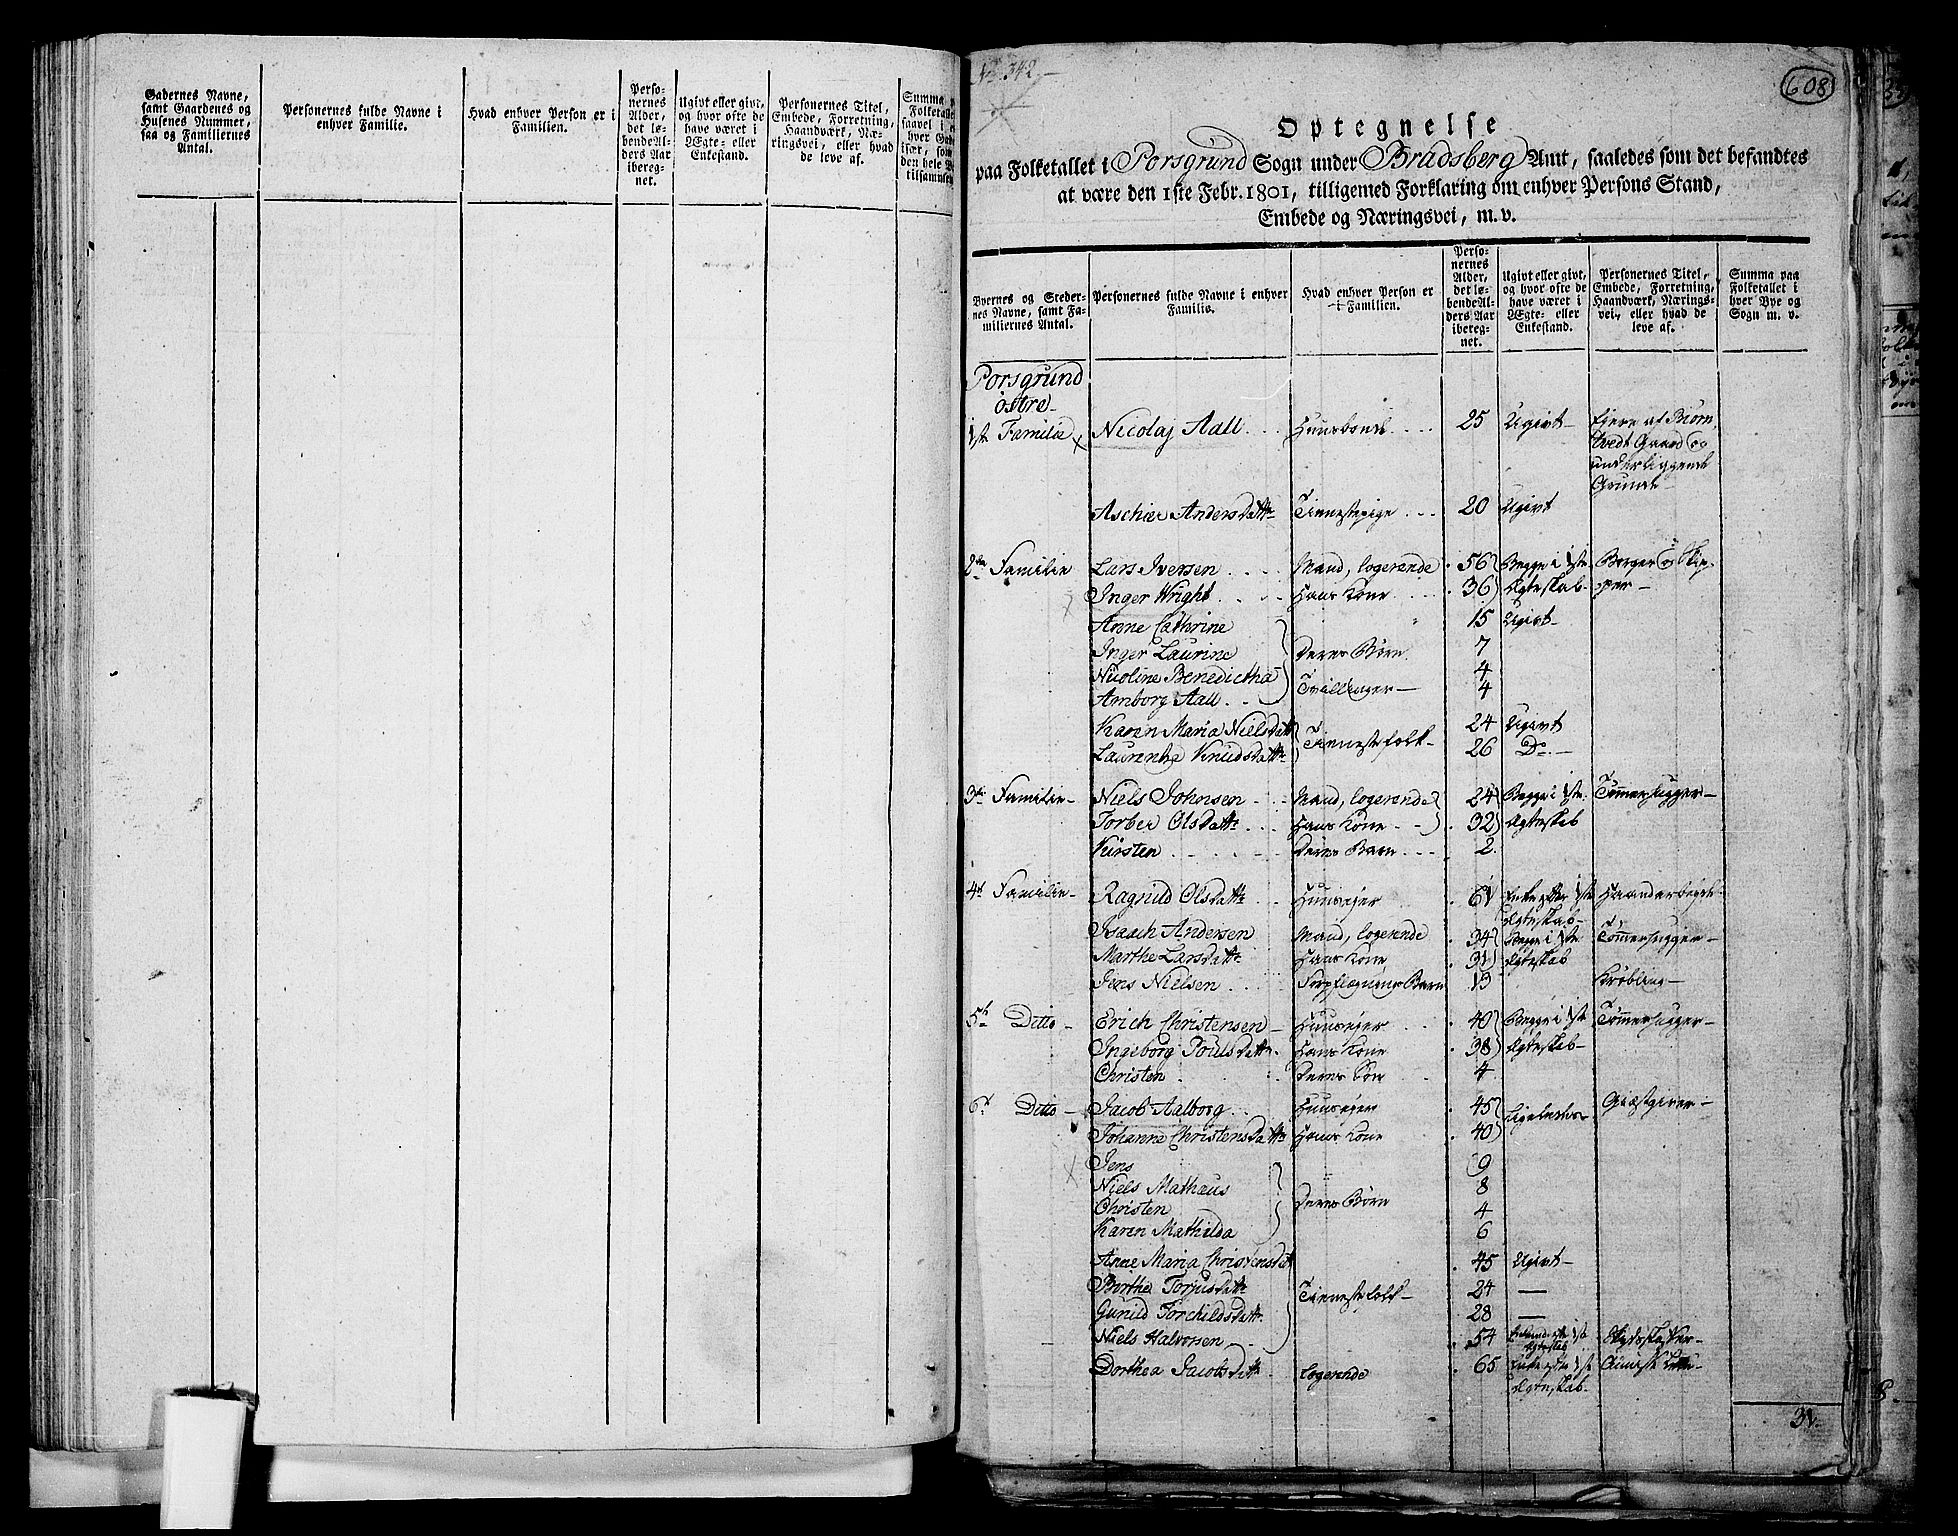 Gadernes Navne, samt Gaardenes og Husenes Nummer, saa og Familiernes Antal.
Personernes fulde Navne i enhver Familie.
Hvad enhver Person er i Familien.
Personernes Alder, det løbende Alders Aar iberegnet.
Ugivt eller givt, og hvor ofte de have været i Ægte- eller Enkestand.
Personernes Titel, Embede, Forretning, Haandværk, Næringsvei, eller hvad de leve af.
No. 342
608
Optegnelse
paa Folketallet i Porsgrund Sogn under Bradsberg Amt, saaledes som det befandtes
at være den 1ste Febr. 1801, tilligemed Forklaring om enhver Persons Stand,
Embede og Næringsvei, m. v.
Byernes og Stedernes Navne, samt Familiernes Antal.
Personernes fulde Navne i enhver Familie.
Hvad enhver Person er i Familien.
Personernes Alder, det løbende Alders Aar iberegnet.
Ugivt eller givt, og hvor ofte de have været i Ægte- eller Enkestand.
Personernes Titel, Embede, Forretning, Haandværk, Næringsvei, eller hvad de leve af.
Summa paa Folketallet i hver Bye og Sogn m. v.
Porsgrund
østre
1ste Familie Nicolaj Aall Huusbonde 25 Ugivt Eiere af Biørn
tvedt Gaard og
underliggende
Grunde
Aschier Andersdattr Tienestepige 20 Ugivt
2den Familie Lars Iversen Mand, logerende 56 Begge i 1ste Borger og Skip-
Inger Wright Hans Kone 36 Ægteskab per
Anne Cathrine 15 Ugivt
Inger Laurine Deres Børn 7
Nicoline Benedictha 4
Amborg Aall Tvillinger 4
Karen Maria Nielsdatt 24 Ugivt
Laurentze Knudsdattr Tienestefolk 26 Do
3die Familie Niels Johnsen Mand, logerende 24 Begge i 1ste Tømmerhugger
Torber Olsdattr Hans Kone 32 Ægteskab
Kirsten Deres Barn 2
4de Familie Ragnild Olsdattr Huusejer 61 Enke efter 1ste Haandarbejde
Ægteskab
Isaach Andersen Mand, logerende 34 Begge i 1ste Tømmerhugger
Marthe Larsdattr Hans Kone 31 Ægteskab
Jens Nielsen Forplegnings Barn 13 Krøbling
5te Ditto Erich Christensen Huusejer 40 Begge i 1ste Tømmerhugger
Ingeborg Poulsdattr Hans Kone 38 Ægteskab
Christen Deres Søn 4
6te Ditto Jacob Aalborg Huusejer 45 Ligeledes Giæstgiver
Johanne Christensdattr Hans Kone 40
Jens 9
Niels Mathæus 8
Christen Deres Børn 4
Karen Mathilda 6
Anne Maria Christensdat 45 Ugivt
Berthe Torjusdattr Tienestefolk 24 —
Gunild Torchildsdattr 28 —
Niels Halvorsen 54 Enkemand efter 1ste
Ægteskab
Dorthea Jacobsdattr logerende 65 Enke efter 1ste
Ægteskab
31.